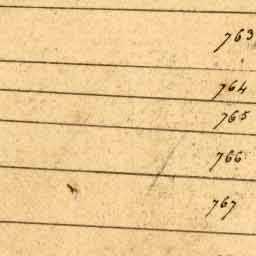 763
764
765
766
767